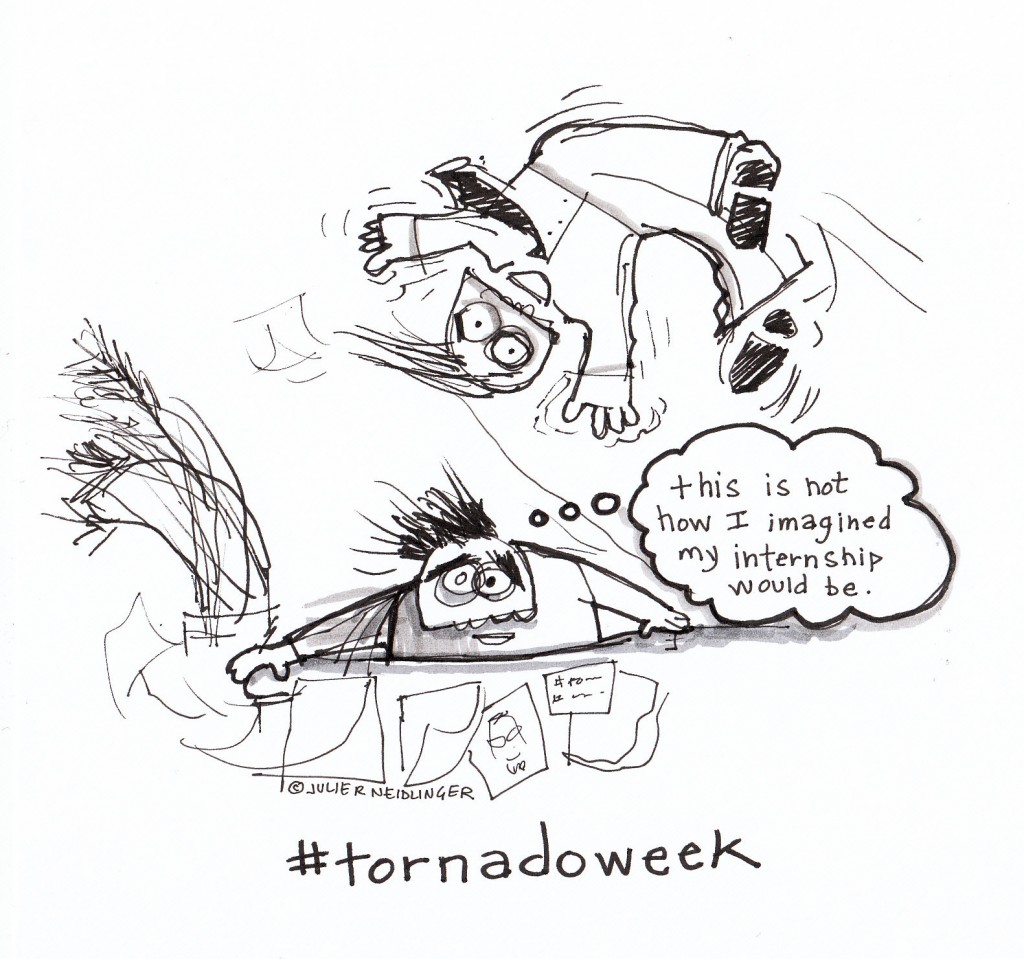 this is not
how I imagined
my internship
would be.
© JULIE R NEIDLINGER
#tornadoweek